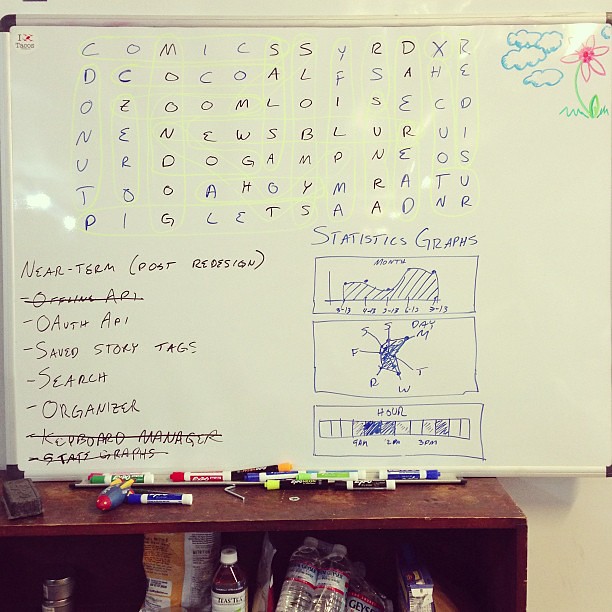 I
Tacos
C O M I C S S Y R D X R
D C O C O A L F S A H E
O Z O O M L O I S E C D
N E N E W S B L U R U I
U R D O G A M P N E O S
T O O A H O Y M R A T U
P I G L E T S A A D N R
STATISTICS GRAPHS
NEAR-TERM (POST REDESIGN)
- OFFLINE API
- OAUTH API
- SAVED STORY TAGS
- SEARCH
- ORGANIZER
- KEYBOARD MANAGER
- STATS GRAPHS
MONTH
3-13 4-13 5-13 6-13 7-13
DAY
S S M
F T
R W
HOUR
9AM 12PM 3PM
EXPO
TEAS' TEA
CRYSTAL GEYSER